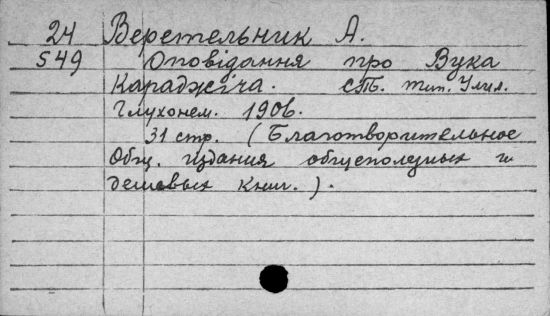 24 Веретельник А.
549 Оповідання про Вука
Караджіча. СПб. тип. Учил.
Глухонем. 1906.
31 стр. (Благотворительное
Общ. издания общеполезных и
дешевых книг.).